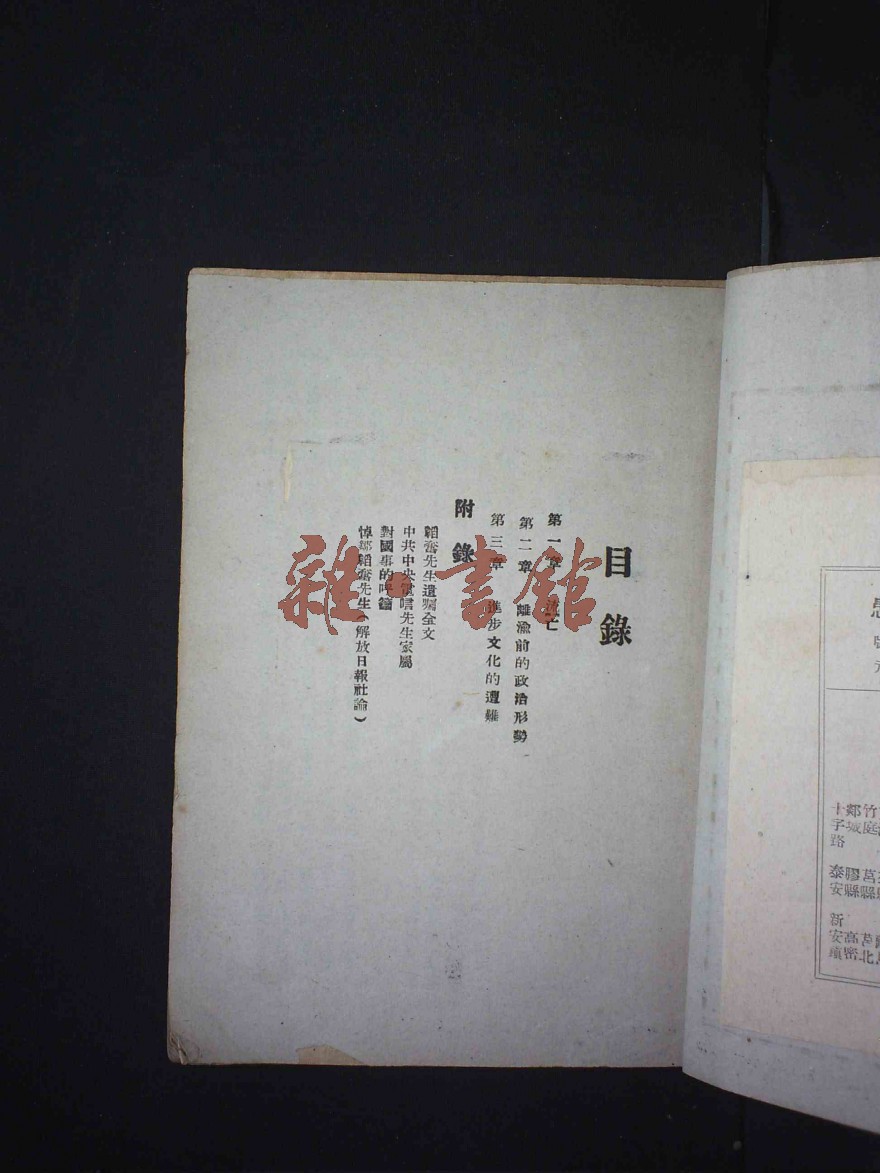 目錄
第一章 流亡
第二章 離渝前的政治形勢
第三章 進步文化的遭難
附錄
韜奮先生遺囑全文
中共中央電唁先生家屬
對國事的呼籲
悼鄒韜奮先生(解放日報社論)
雜·書館
十字路
郯城
竹庭
泰安
膠縣
新安鎮
高密